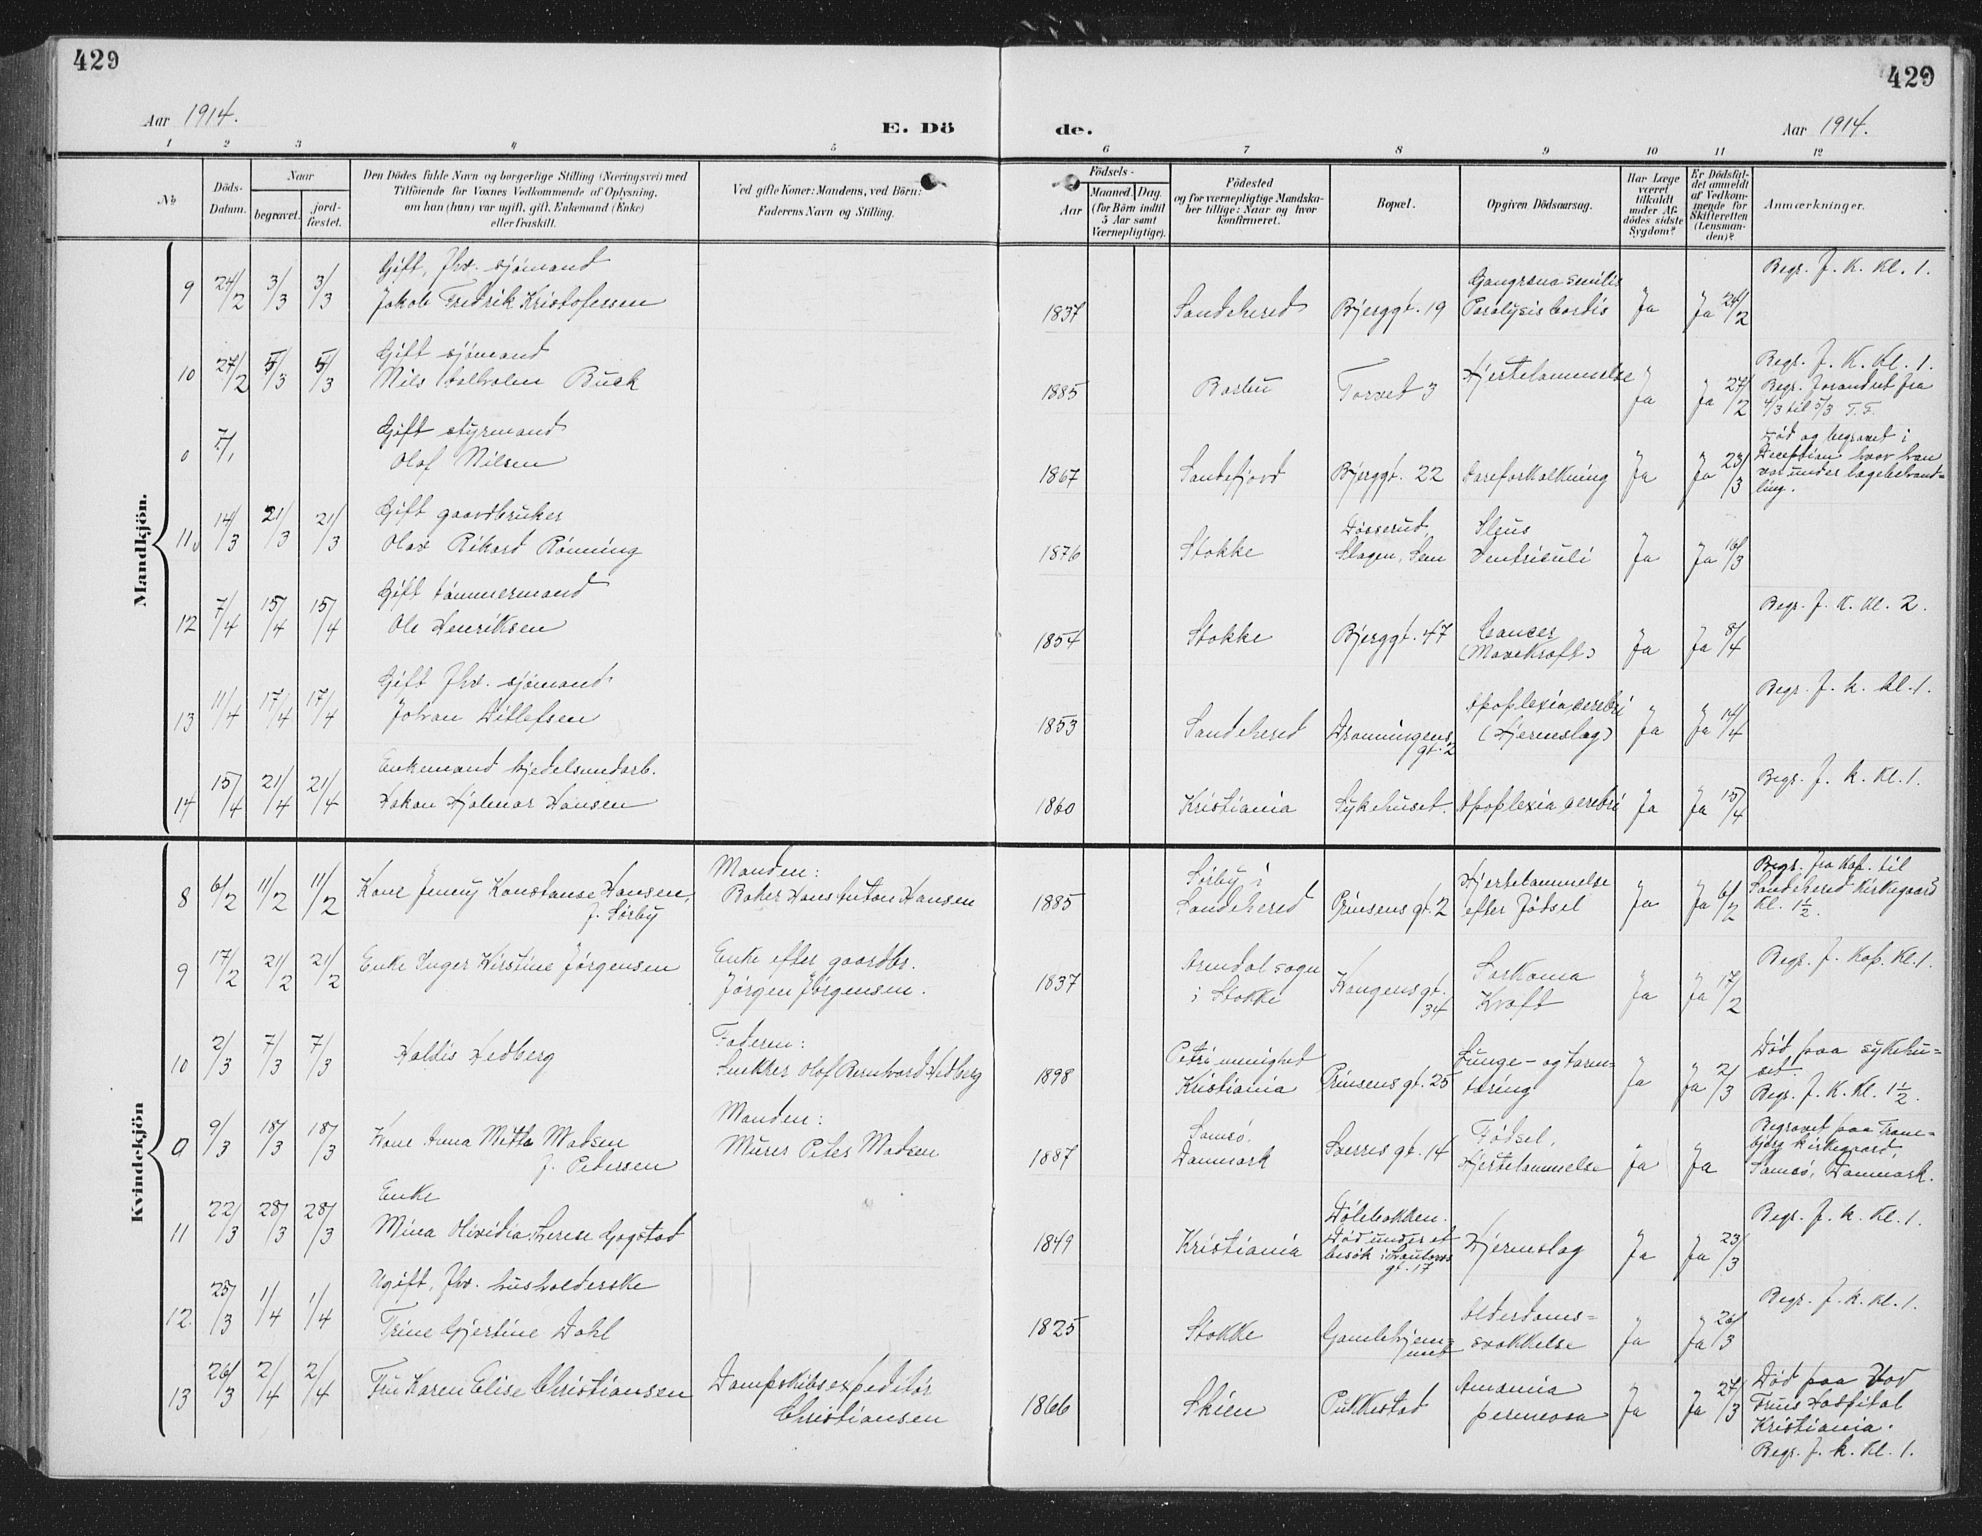 429
429
Aar 1914.
E. Dö
de.
Aar 1914.
1 2 3 4 5 6 7 8 9 10 11 12
No
Döds-
Datum.
Naar
begravet.
jord-
fæstet.
Den Dödes fulde Navn og borgerlige Stilling (Næringsvei) med
Tilföiende for Voxnes Vedkommende af Oplysning,
om han (hun) var ugift, gift, Enkemand (Enke)
eller fraskilt.
Ved gifte Koner: Mandens, ved Börn:
Faderens Navn og Stilling.
Födsels-
Aar
Maaned. Dag.
(for Börn indtil
5 Aar samt
Værnepligtige).
Födested
og for værnepligtige Mandska-
ber tillige: Naar og hvor
konfirmeret.
Bopæl.
Opgiven Dödsaarsag.
Har Læge
været
tilkaldt
under Af-
dödes sidste
Sygdom?
Er Dödsfal-
det anmeldt
af Vedkom-
mende for
Skifteretten
(Lensman-
den)?
Anmærkninger.
Mandkjön.
Gift, fhv. sjömand Gangræna senilis Begr. f. K. Kl. 1.
9 24/2 3/3 3/3 Jakob Fredrik Kristofersen 1837 Sandehered Bjerggt. 19 Paralysis cordis Ja Ja 24/2
Gift sjömand Begr. f. K. Kl. 1.
10 27/2 5/3 5/3 Nils Buck 1885 Barbu Torvet 3 Hjertelammelse Ja Ja 27/2 Begr. forandret fra
4/3 til 5/3 T.F.
Gift styrmand Död og begravet i
0 7/1 Olof Nilsen 1867 Sandefjord Bjerggt. 22 Aareforkalkning Ja Ja 23/3 Deception hvor han
var under lægebehand=
ling.
Gift gaardbruker
11 14/3 21/3 21/3 Olav Rikard Rönning 1876 Stokke Slagen, Sem Ventriculi Ja Ja 16/3
Gift tömmermand Begr. f. K. Kl. 2.
12 7/4 15/4 15/4 Ole Henriksen 1854 Stokke Bjerggt. 47 Cancer
(Mavekræft) Ja Ja 8/4
Gift fhv. sjömand Apoplexia cerebri Begr. f. k. kl. 1.
13 11/4 17/4 17/4 Johan Ditlefsen 1853 Sandehered Dronningens
gt. 2 (Hjerneslag) Ja Ja 14/4
Enkemand kjedelsmedarb. Begr. f. k. Kl. 1.
14 15/4 21/4 21/4 Hakon Hjalmar Hansen 1860 Kristiania Sykehuset. Apoplexia cerebri Ja Ja 15/4
Kvindekjön
Manden: Sörby i Hjertelammelse Begr. fra Kap. til
8 6/2 11/2 11/2 Kone Jenny Konstanse Hansen, Baker Hans Anton Hansen 1885 Sandehered Prinsens gt. 2 efter födsel Ja Ja 6/2 Sandehered Kirkegaard
f. Sörby Kl. 1½.
Enke efter gaardbr. Arendal sogn Sarkoma Begr. f. Kap. Kl. 1.
9 17/2 21/2 21/2 Enke Inger Kirstine Jörgensen Jörgen Jörgensen. 1837 i Stokke Kongens gt.
34 Kræft Ja Ja 17/2
Faderen: Petri menighet Lunge- og tarm- Död paa sykehu=
set.
10 2/3 7/3 7/3 Haldis Hedberg Snekker Olof Bernhard Hedberg 1898 Kristiania Prinsens gt. 25 tæring Ja Ja 2/3 Begr. f. K. Kl. 1½.
Manden: Samsö, Födsel, Begravet paa Trane-
0 9/3 18/3 18/3 Kone Anna Mette Madsen Murer Peter Madsen 1887 Danmark Sverres gt. 14 Hjertelammelse Ja Ja bjerg kirkegaard,
f. Petersen Samsö, Danmark.
Enke Dölebakken. Begr. f. k. Kl. 1.
11 22/3 28/3 28/3 Mina Olividia Therese Gogstad 1849 Kristiania Död under et
besök i
gt. 17 Hjerneslag Ja Ja 23/3
Ugift, fhv. husholderske Alderdoms= Begr. f. k. Kl. 1.
12 25/3 1/4 1/4 Trine Gjertine Dahl 1825 Stokke Gamlehjem=
met svakkelse Ja Ja 26/3
13 26/3 2/4 2/4 Fru Karen Elise Christiansen Dampskibsexpeditör
Christiansen 1866 Skien Pukkestad Anæmia
perniciosa Ja Ja 27/3 Död paa Vor
Frues Hospital
Kristiania.
Begr. f. k. Kl. 1.